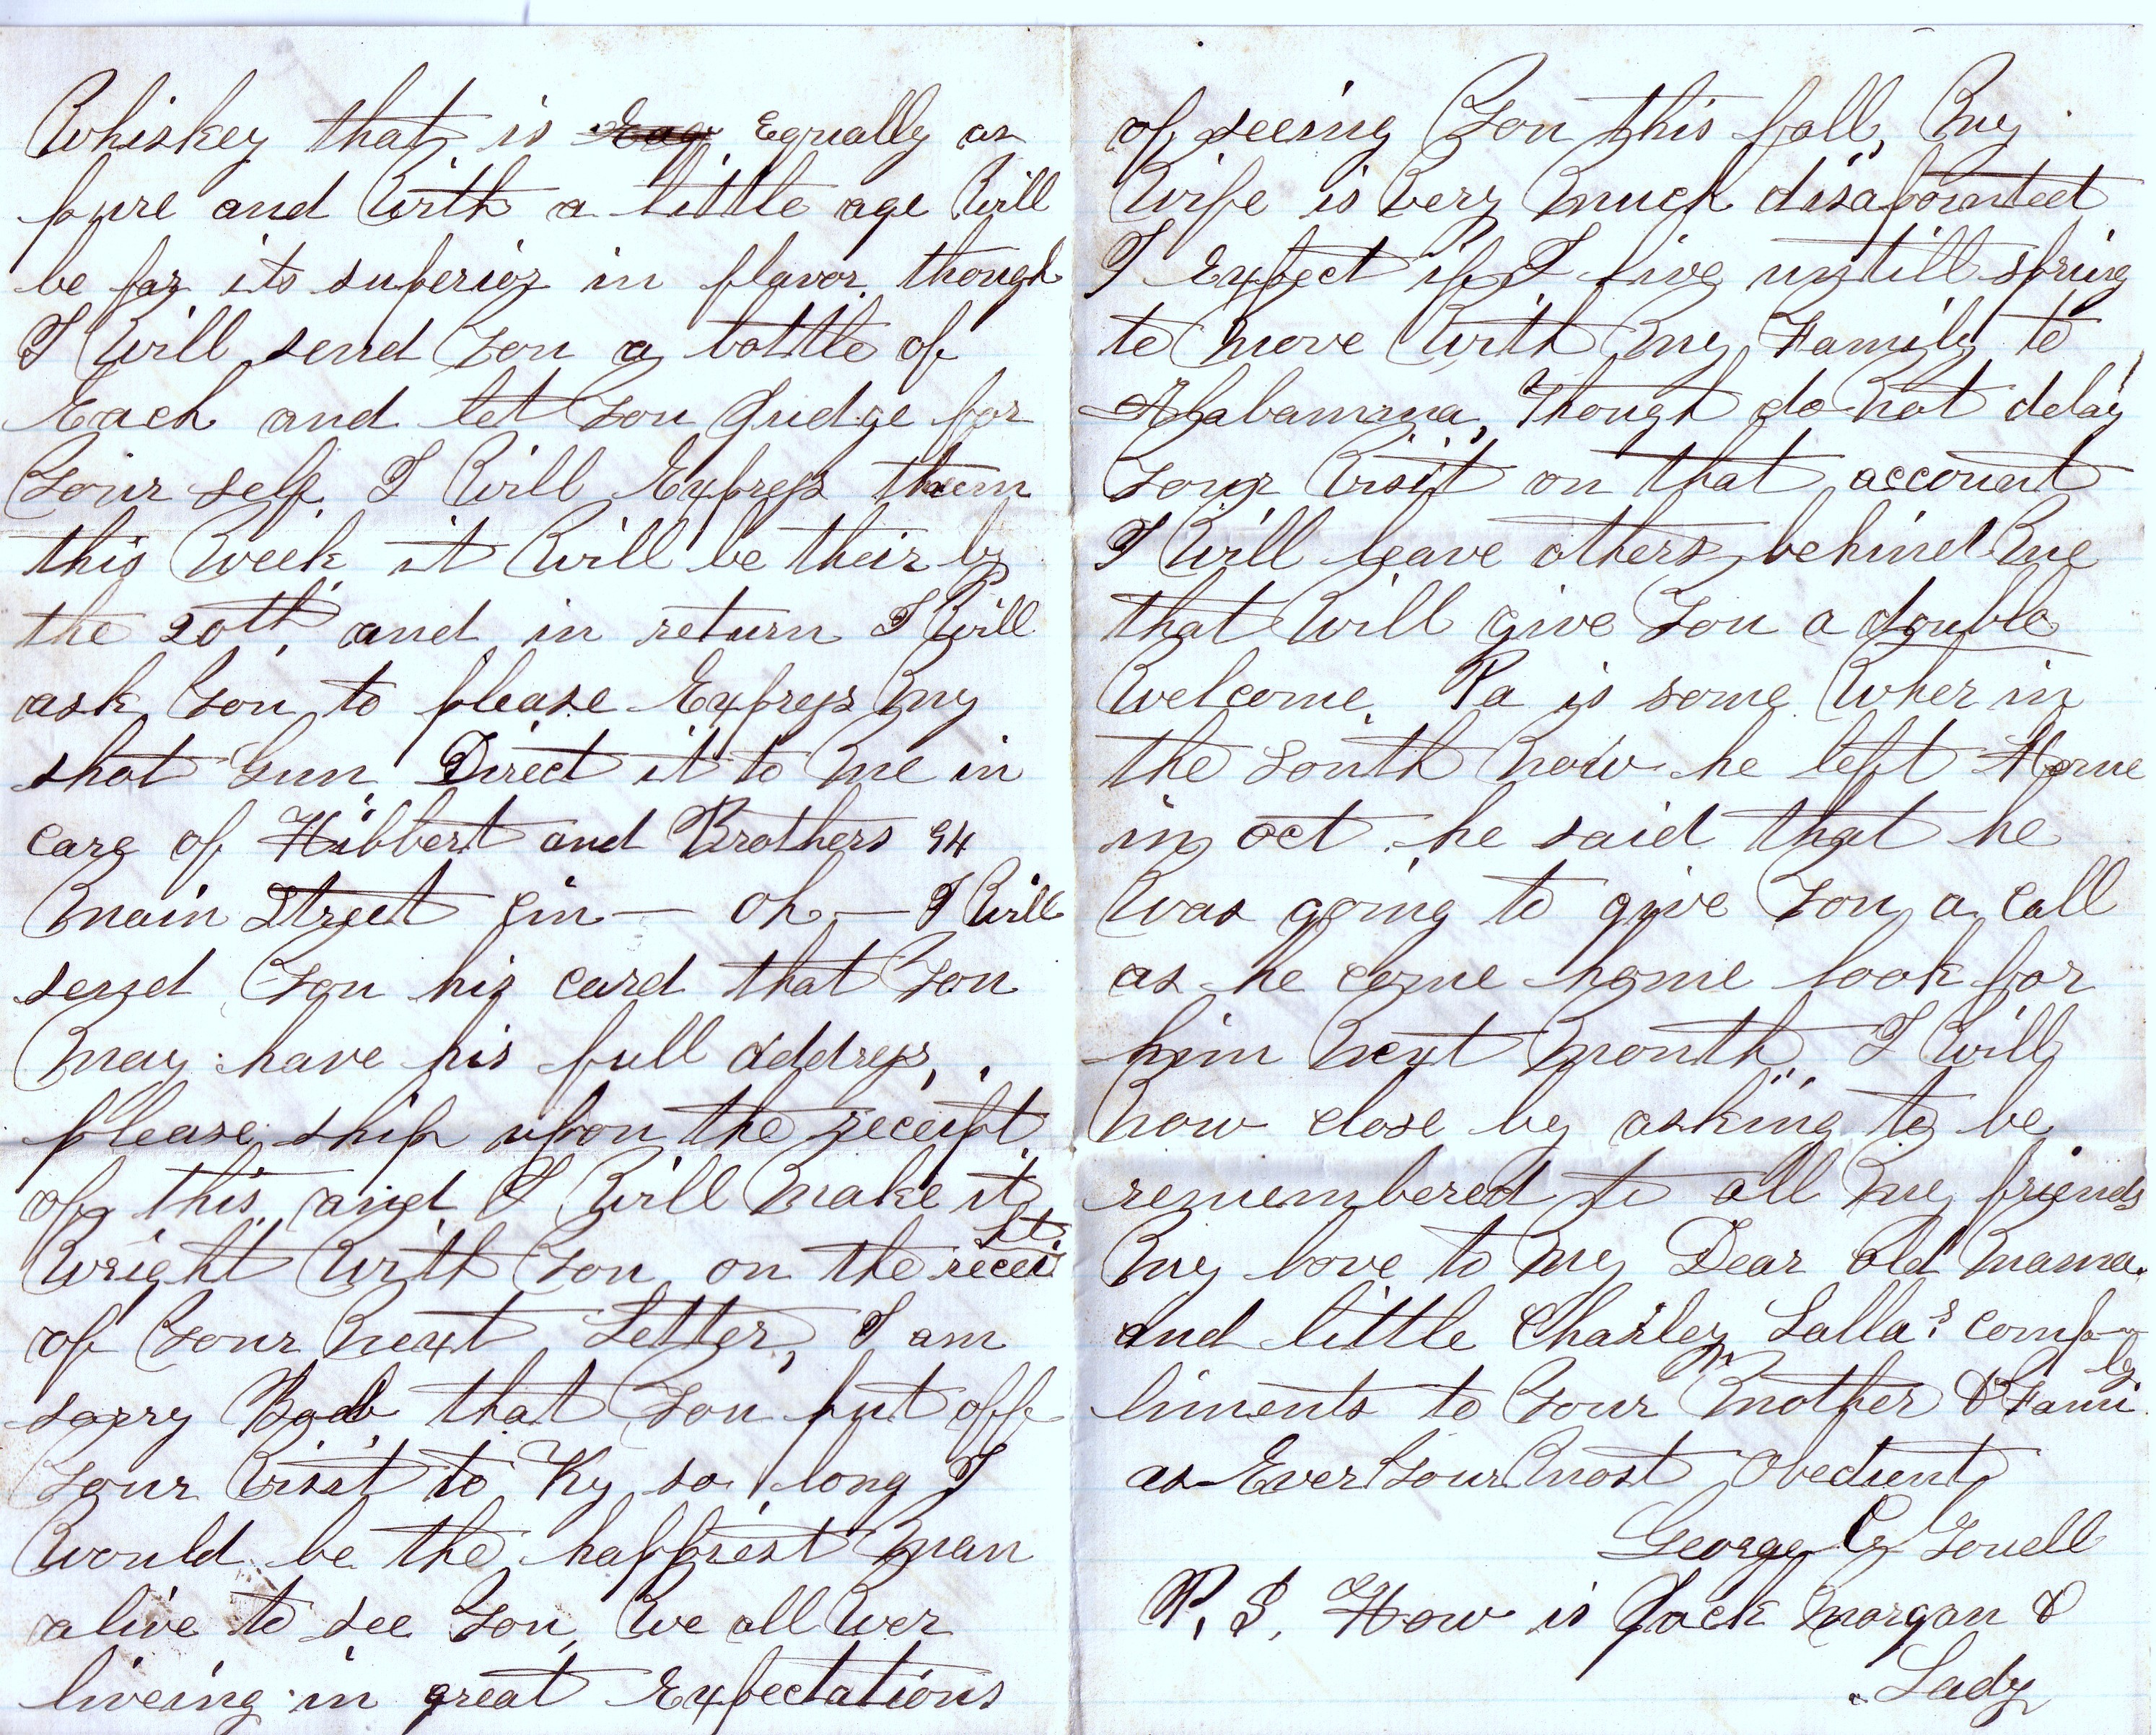 Whiskey that is Equally as
pure and With a little age Will
be far its superior in flavor though
I Will send You a bottle of
Each and let You Judge for
Your self. I Will Express them
this Week it Will be their by
the 20th, and in return I Will
ask You to please Express My
shot Gun Direct it to Me in
care of Hibbert and Brothers 94
Main Street Cin — Oh — I Will
send You his card that You
May have his full address,
please ship upon the receipt
of this and I Will Make it
Wright With You on the receipt
of Your Next Letter, I am
sorry Bob that You put off
Your Visit to Ky so long I
Would be the happiest Man
alive to see You, We all Wer
liveing in great Expectations
of seeing You this fall, My
Wife is Very Much disapointed
I Expect if I live untill spring
to Move With My Family to
Alabamma, Though do Not delay
Your Visit on that account
I Will leave others behind Me
that Will give You a double
Welcome. Pa is some Wher in
the South Now he left Home
in oct. he said that he
Was going to give You a Call
as he come home look for
him Next Month. I Will
Now close by asking to be
remembered to all My friends
My love to My Dear Old Mama.
and little Charley Lalla's comp-
liments to Your Mother & Family
as Ever Your Most Obedient
George C Youell
P. S. How is Jack Morgan &
Lady